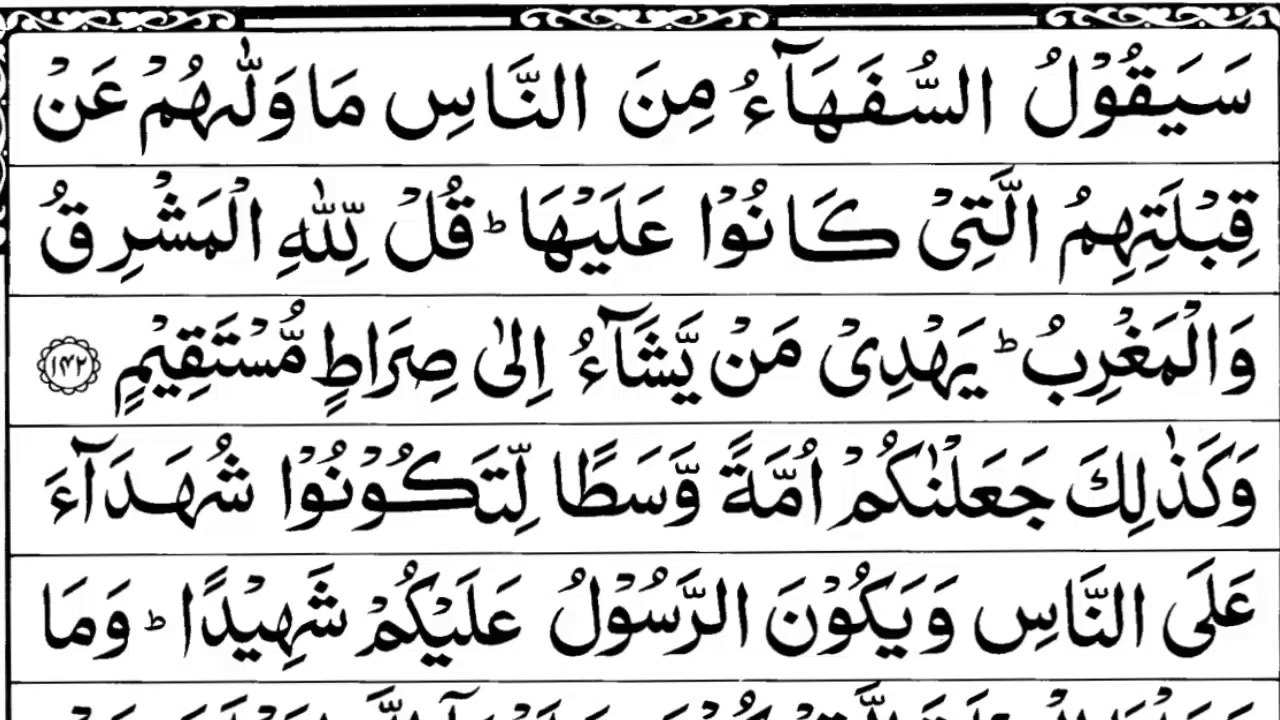 سَيَقُوْلُ السُّفَهَآءُ مِنَ النَّاسِ مَا وَلّٰىهُمْ عَنْ
قِبْلَتِهِمُ الَّتِیْ كَانُوْا عَلَيْهَا ؕ قُلْ لِّلّٰهِ الْمَشْرِقُ
وَالْمَغْرِبُ ؕ يَهْدِیْ مَنْ يَّشَآءُ اِلٰى صِرَاطٍ مُّسْتَقِيْمٍ ﴿۱۴۲﴾
وَكَذٰلِكَ جَعَلْنٰكُمْ اُمَّةً وَّسَطًا لِّتَكُوْنُوْا شُهَدَآءَ
عَلَى النَّاسِ وَيَكُوْنَ الرَّسُوْلُ عَلَيْكُمْ شَهِيْدًا ؕ وَمَا